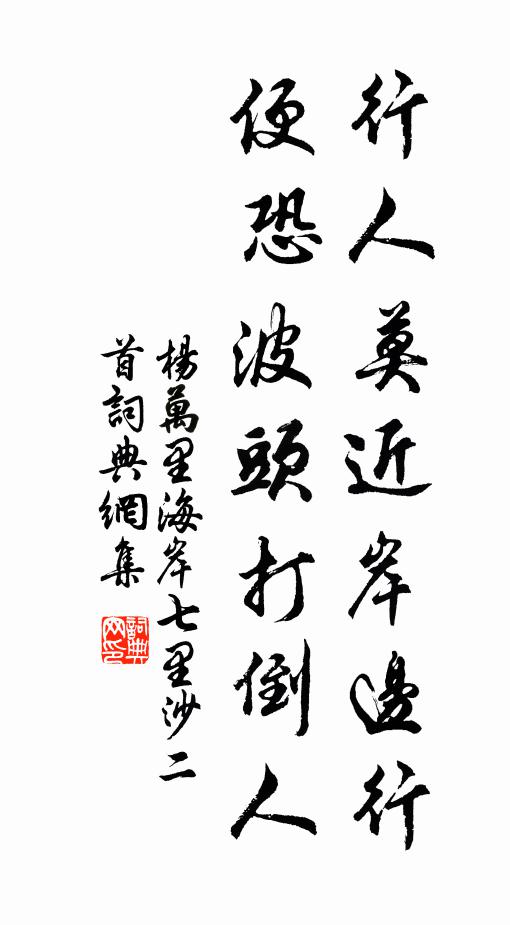 行人莫近岸邊行
便恐波頭打倒人
楊萬里海岸七里沙二
首詞典網集
詞典网印